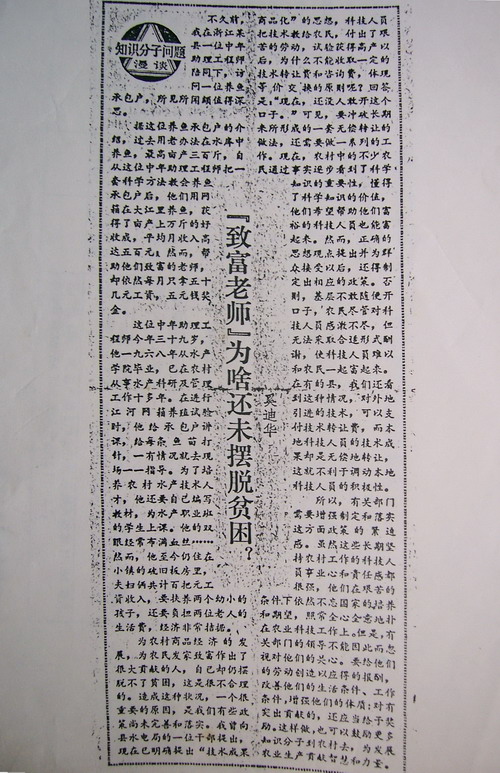 知识分子问题
漫谈
『致富老师』为啥还未摆脱贫困？
奚迪华
不久前，
我在浙江某
县一位中年
助理工程师
承包户，所见所闻颇值得深
思。
据这位养鱼承包户的介
绍，过去用老办法在水库中
养鱼，最高亩产三百斤，自
从这位中年助理工程师把一
套科学方法教会养鱼
承包户后，他们用网
箱在大江里养鱼，获
得了亩产上万斤的好
收成，平均月收入高
达五百元。然而，帮
助他们致富的老师，
却依然每月只拿五十
几元工资，五元钱奖
金。
这位中年助理工
程师今年三十九岁，
他一九六八年从水产
学院毕业，已在农村
从事水产科研及管理
工作十多年。在进行
江河网箱养殖试验
时，他给承包户讲
课，给每条鱼苗打
针，一有情况就去现
场一一指导。为了培
养农村水产技术人
才，他还要自己编写
教材，为水产职业班
的学生上课。他的双
眼经常布满血丝……
然而，他至今仍住在
小镇的破旧板房里，
夫妇俩共计百把元工
资收入，要扶养两个幼小的
孩子，还要负担两位老人的
生活费，经济非常拮据。
为农村商品经济的发
展，为农民发家致富作出了
很大贡献的人，自己却仍摆
脱不了贫困，这是很不合理
的。造成这种状况，一个很
重要的原因，是我们有些政
策尚未完善和落实。我曾向
县水电局的一位干部提出，
现在已明确提出“技术成果
商品化”的思想，科技人员
把技术教给农民，付出了艰
苦的劳动，试验获得高产以
后，为什么不能收取一定的
技术转让费和咨询费，体现
等价交换的原则呢？回答
是：“现在，还没人敢开这个
口子。”可见，要冲破长期
来所形成的一套无偿转让的
做法，还需要做一系列的工
作。现在，农村中的不少农
民通过事实逐步看到了科学
知识的重要性，懂得
了科学知识的价值，
他们希望帮助他们富
裕的科技人员也能富
起来。然而，正确的
思想观点提出并为群
众接受以后，还得制
定出相应的政策。否
则，基层不敢随便开
口子，农民尽管对科
技人员感激不尽，但
无法采取合适形式酬
谢，使科技人员难以
和农民一起富起来。
在有的县，我们还看
到这种情况，对外地
引进的技术，可以支
付技术转让费，而本
地科技人员的技术成
果却是无偿地转让，
这就不利于调动本地
科技人员的积极性。
所以，有关部门
需要增强制定和落实
这方面政策的紧迫
感。虽然这些长期坚
持农村工作的科技人
员事业心和责任感都
很强，他们在艰苦的
条件下依然不忘国家的培养
和期望，照常全心全意地扑
在农业科技工作上。但是，有
关部门的领导不能因此而忽
视对他们的关心。要给他们
的劳动创造以应得的报酬，
改善他们的生活条件、工作
条件，增强他们的体质；对有
突出贡献的，还应当给予奖
励。这样做，也可以鼓励更多
知识分子到农村去，为发展
农业生产贡献智慧和力量。